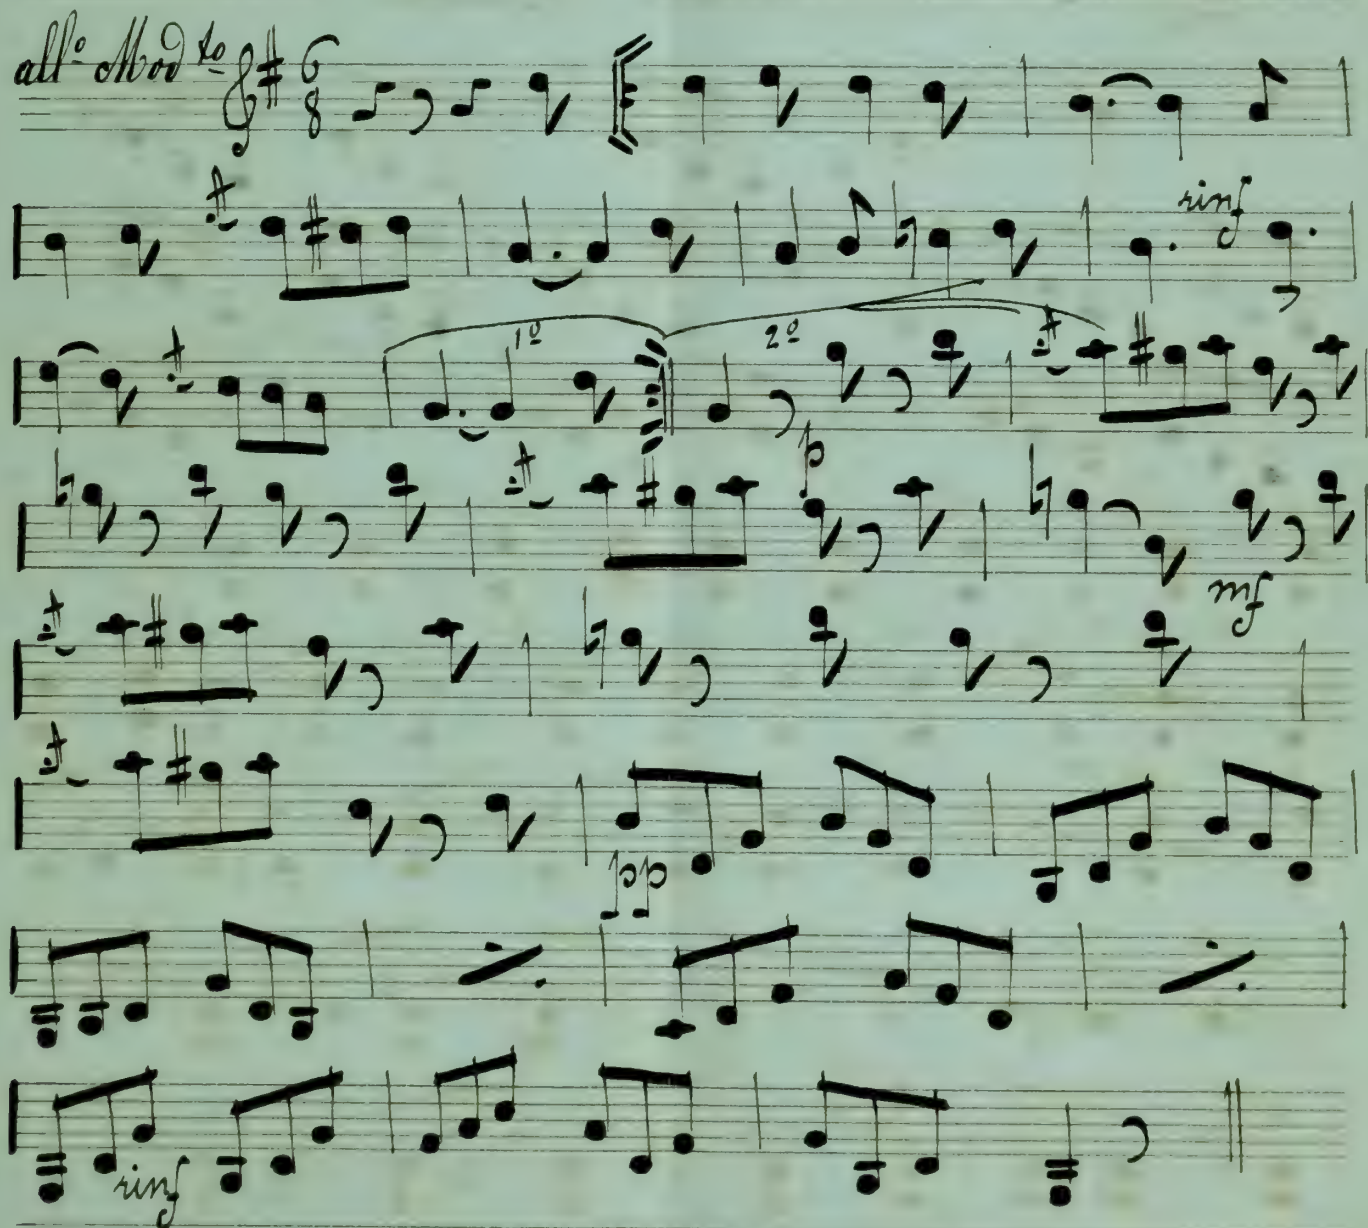 allº Modto
6
8
rinf
1º 2º
p
mf
pp
rinf